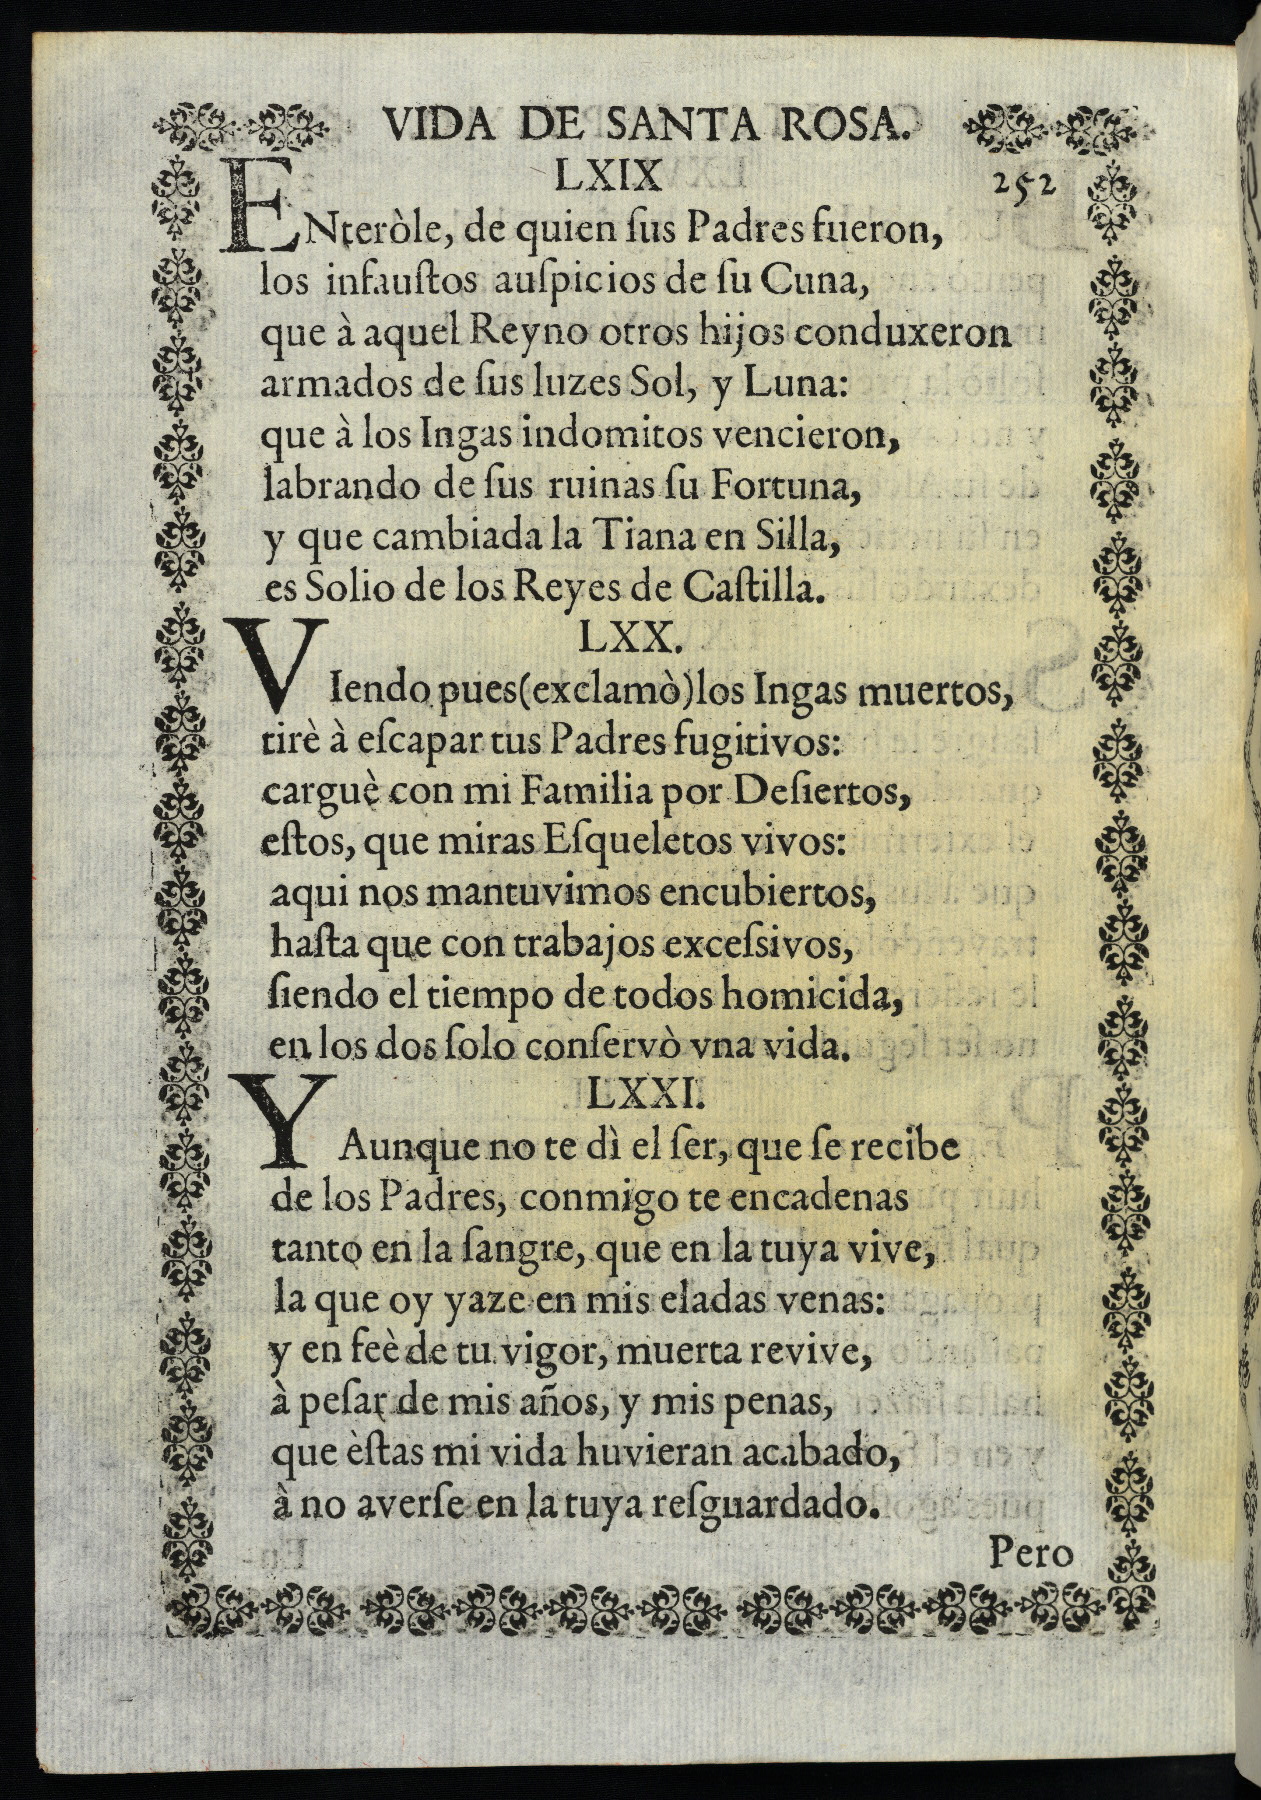 VIDA DE SANTA ROSA.
LXIX
252
ENteròle, de quien ſus Padres fueron,
los infauſtos auſpicios de ſu Cuna,
que à aquel Reyno otros hijos conduxeron
armados de ſus luzes Sol, y Luna:
que à los Ingas indomitos vencieron,
labrando de ſus ruinas ſu Fortuna,
y que cambiada la Tiana en Silla,
es Solio de los Reyes de Caſtilla.
LXX.
VIendo pues (exclamò) los Ingas muertos,
tirè à eſcapar tus Padres fugitivos:
carguè con mi Familia por Deſiertos,
eſtos, que miras Eſqueletos vivos:
aqui nos mantuvimos encubiertos,
haſta que con trabajos exceſsivos,
ſiendo el tiempo de todos homicida,
en los dos ſolo conſervò vna vida.
LXXI.
Y Aunque no te dì el ſer, que ſe recibe
de los Padres, conmigo te encadenas
tanto en la ſangre, que en la tuya vive,
la que oy yaze en mis eladas venas:
y en feè de tu vigor, muerta revive,
à peſar de mis años, y mis penas,
que èſtas mi vida huvieran acabado,
à no averſe en la tuya reſguardado.
Pero